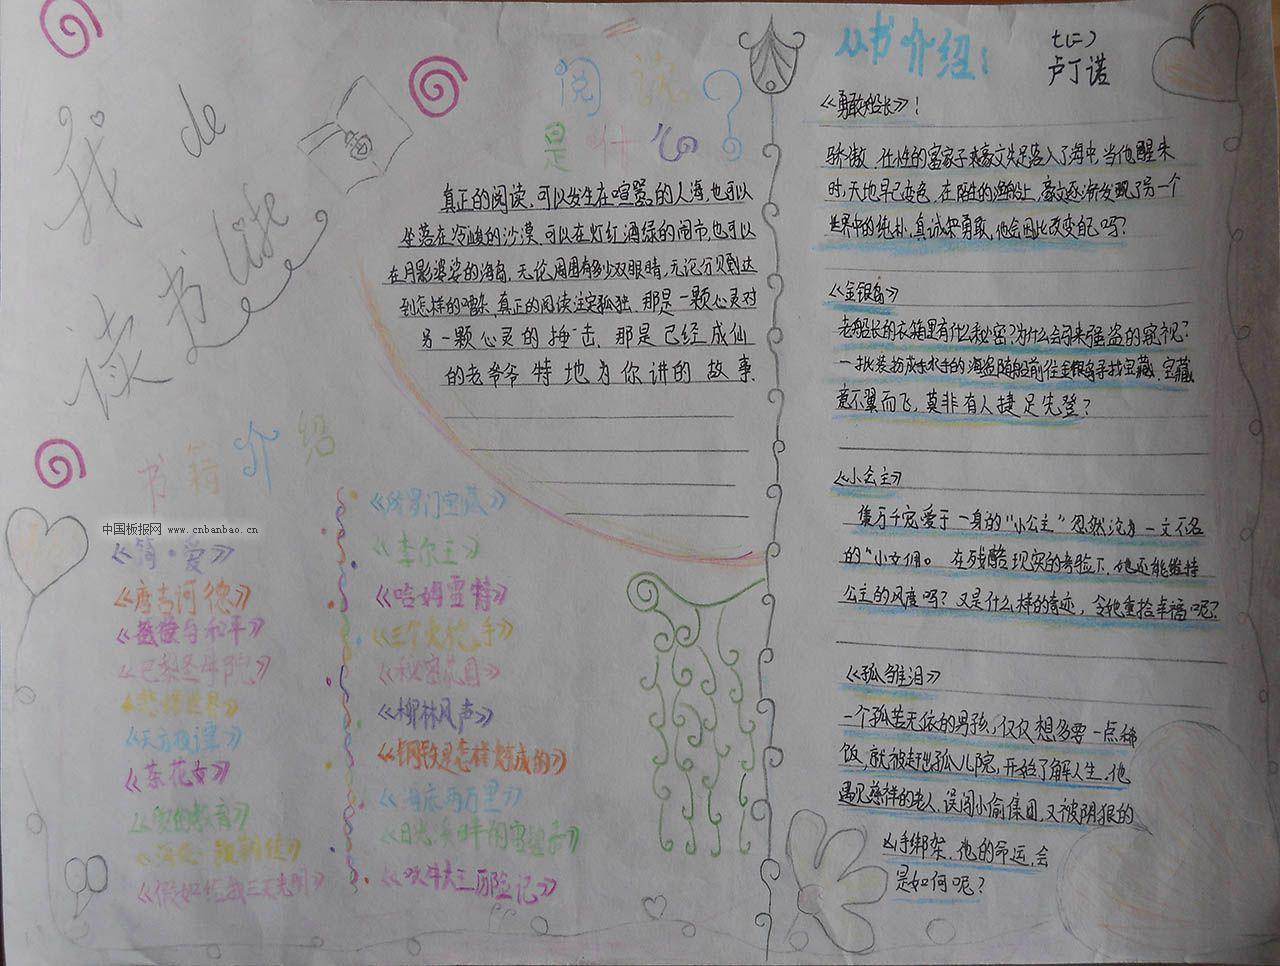 我 de
读书 life
阅读
是什么?
真正的阅读,可以发生在喧嚣的人海,也可以
坐落在冷峻的沙漠,可以在灯红酒绿的闹市,也可以
在月影婆娑的海岛,无论周围有多少双眼睛,无论分贝到达
到怎样的嘈杂,真正的阅读注定孤独,那是一颗心灵对
另一颗心灵的撞击,那是已经成仙
的老爷爷特地为你讲的故事.
书籍介绍
中国板报网 www.cnbanbao.cn
《简·爱》
《唐吉诃德》
《战争与和平》
《巴黎圣母院》
《悲惨世界》
《天方夜谭》
《茶花女》
《爱的教育》
《假如给我三天光明》
《所罗门宝藏》
《李尔王》
《哈姆雷特》
《三个火枪手》
《秘密花园》
《柳林风声》
《钢铁是怎样炼成的》
《海底两万里》
《吹牛大王历险记》
丛书介绍:
七(二)
卢丁诺
《勇敢船长》!
骄傲、任性的富家子弟豪文失足落入了海中,当他醒来
时,天地早已变色,在陌生的渔船上,豪文逐渐发现了另一个
世界中的纯朴、真诚和勇敢,他会因此改变自己吗?
《金银岛》
老船长的衣箱里有什么秘密?为什么会引来强盗的窥视?
一批装扮成水手的海盗随船前往金银岛寻找宝藏,宝藏
竟不翼而飞,莫非有人捷足先登?
《小公主》
集万千宠爱于一身的“小公主”忽然沦为一文不名
的“小女佣。在残酷现实的考验下,她还能维持
公主的风度吗?又是什么样的奇迹,令她重拾幸福呢?
《孤雏泪》
一个孤苦无依的男孩,仅仅想多要一点稀
饭,就被赶出孤儿院,开始了解人生,他
遇见慈祥的老人,误闯小偷集团,又被阴狠的
凶手绑架,他的命运,会
是如何呢?